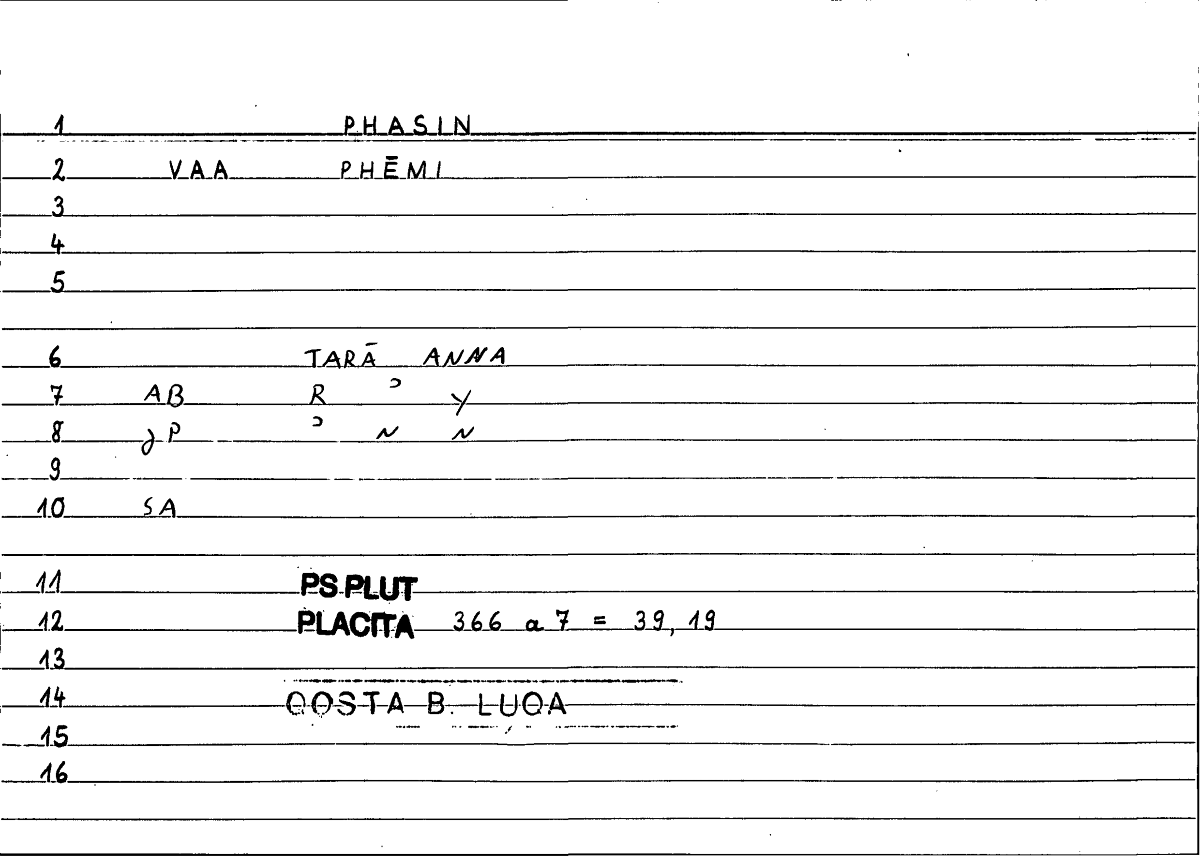 1 PHASIN
2 VAA PHĒMI
3
4
5
6 TARĀ ANNA
7 AB R ʾ Y
8 JP ʾ N N
9
10 SA
11 PS.PLUT
12 PLACITA 366 a 7 = 39, 19
13
14 QOSTA B. LUQA
15
16